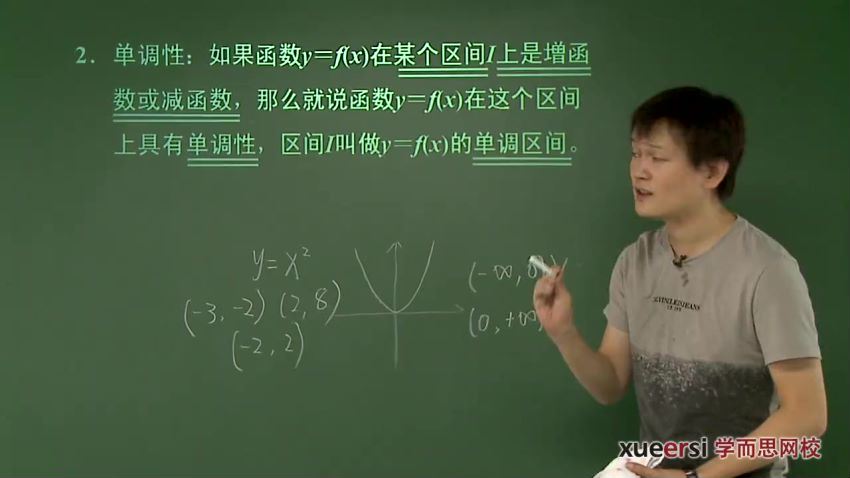 2. 单调性：如果函数y＝f(x)在某个区间I上是增函
数或减函数，那么就说函数y＝f(x)在这个区间
上具有单调性，区间I叫做y＝f(x)的单调区间。
y=x²
(-3, -2) (2, 8)
(-2, 2)
(-∞, 0)
(0, +∞)
xueersi 学而思网校